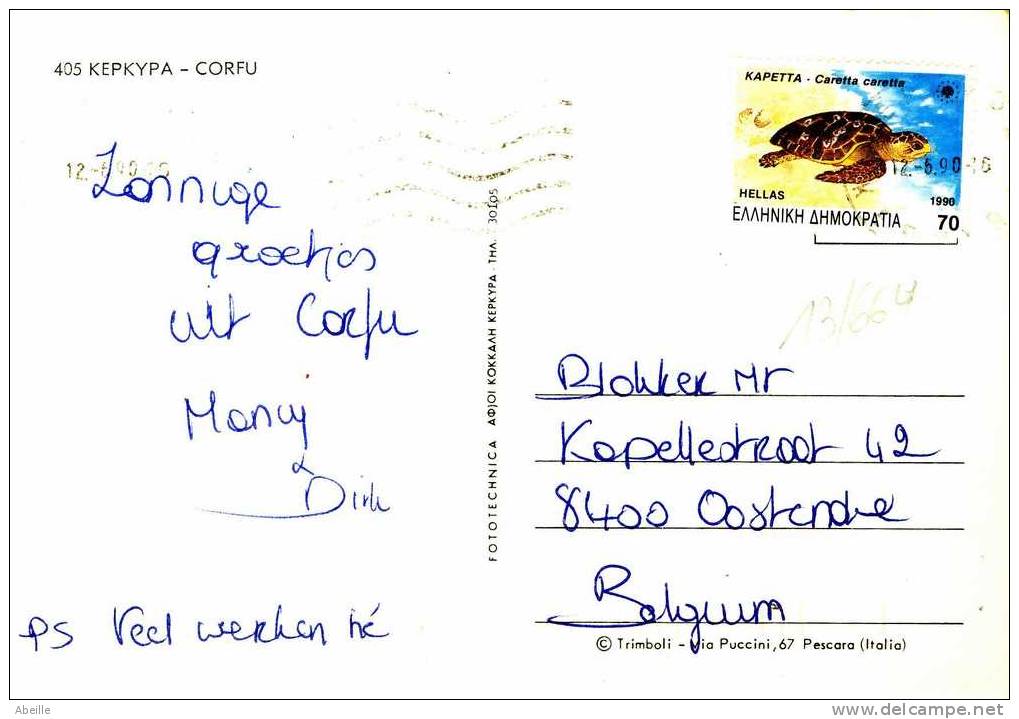 405 ΚΕΡΚΥΡΑ – CORFU
ΚΑΡΕΤΤΑ - Caretta caretta
HELLAS
1990
ΕΛΛΗΝΙΚΗ ΔΗΜΟΚΡΑΤΙΑ 70
12.-6.90
12.-6.90
Zonnige
groetjes
uit Corfu
Nancy
&
Dirk
PS Veel werken hé
FOTOTECHNICA ΑΦ)ΟΙ ΚΟΚΚΑΛΗ ΚΕΡΚΥΡΑ - ΤΗΛ. 30105
13/66
Blokker Mr
Kapellestraat 42
8400 Oostende
Belgium
© Trimboli – Via Puccini, 67 Pescara (Italia)
Abeille
delcampe.net